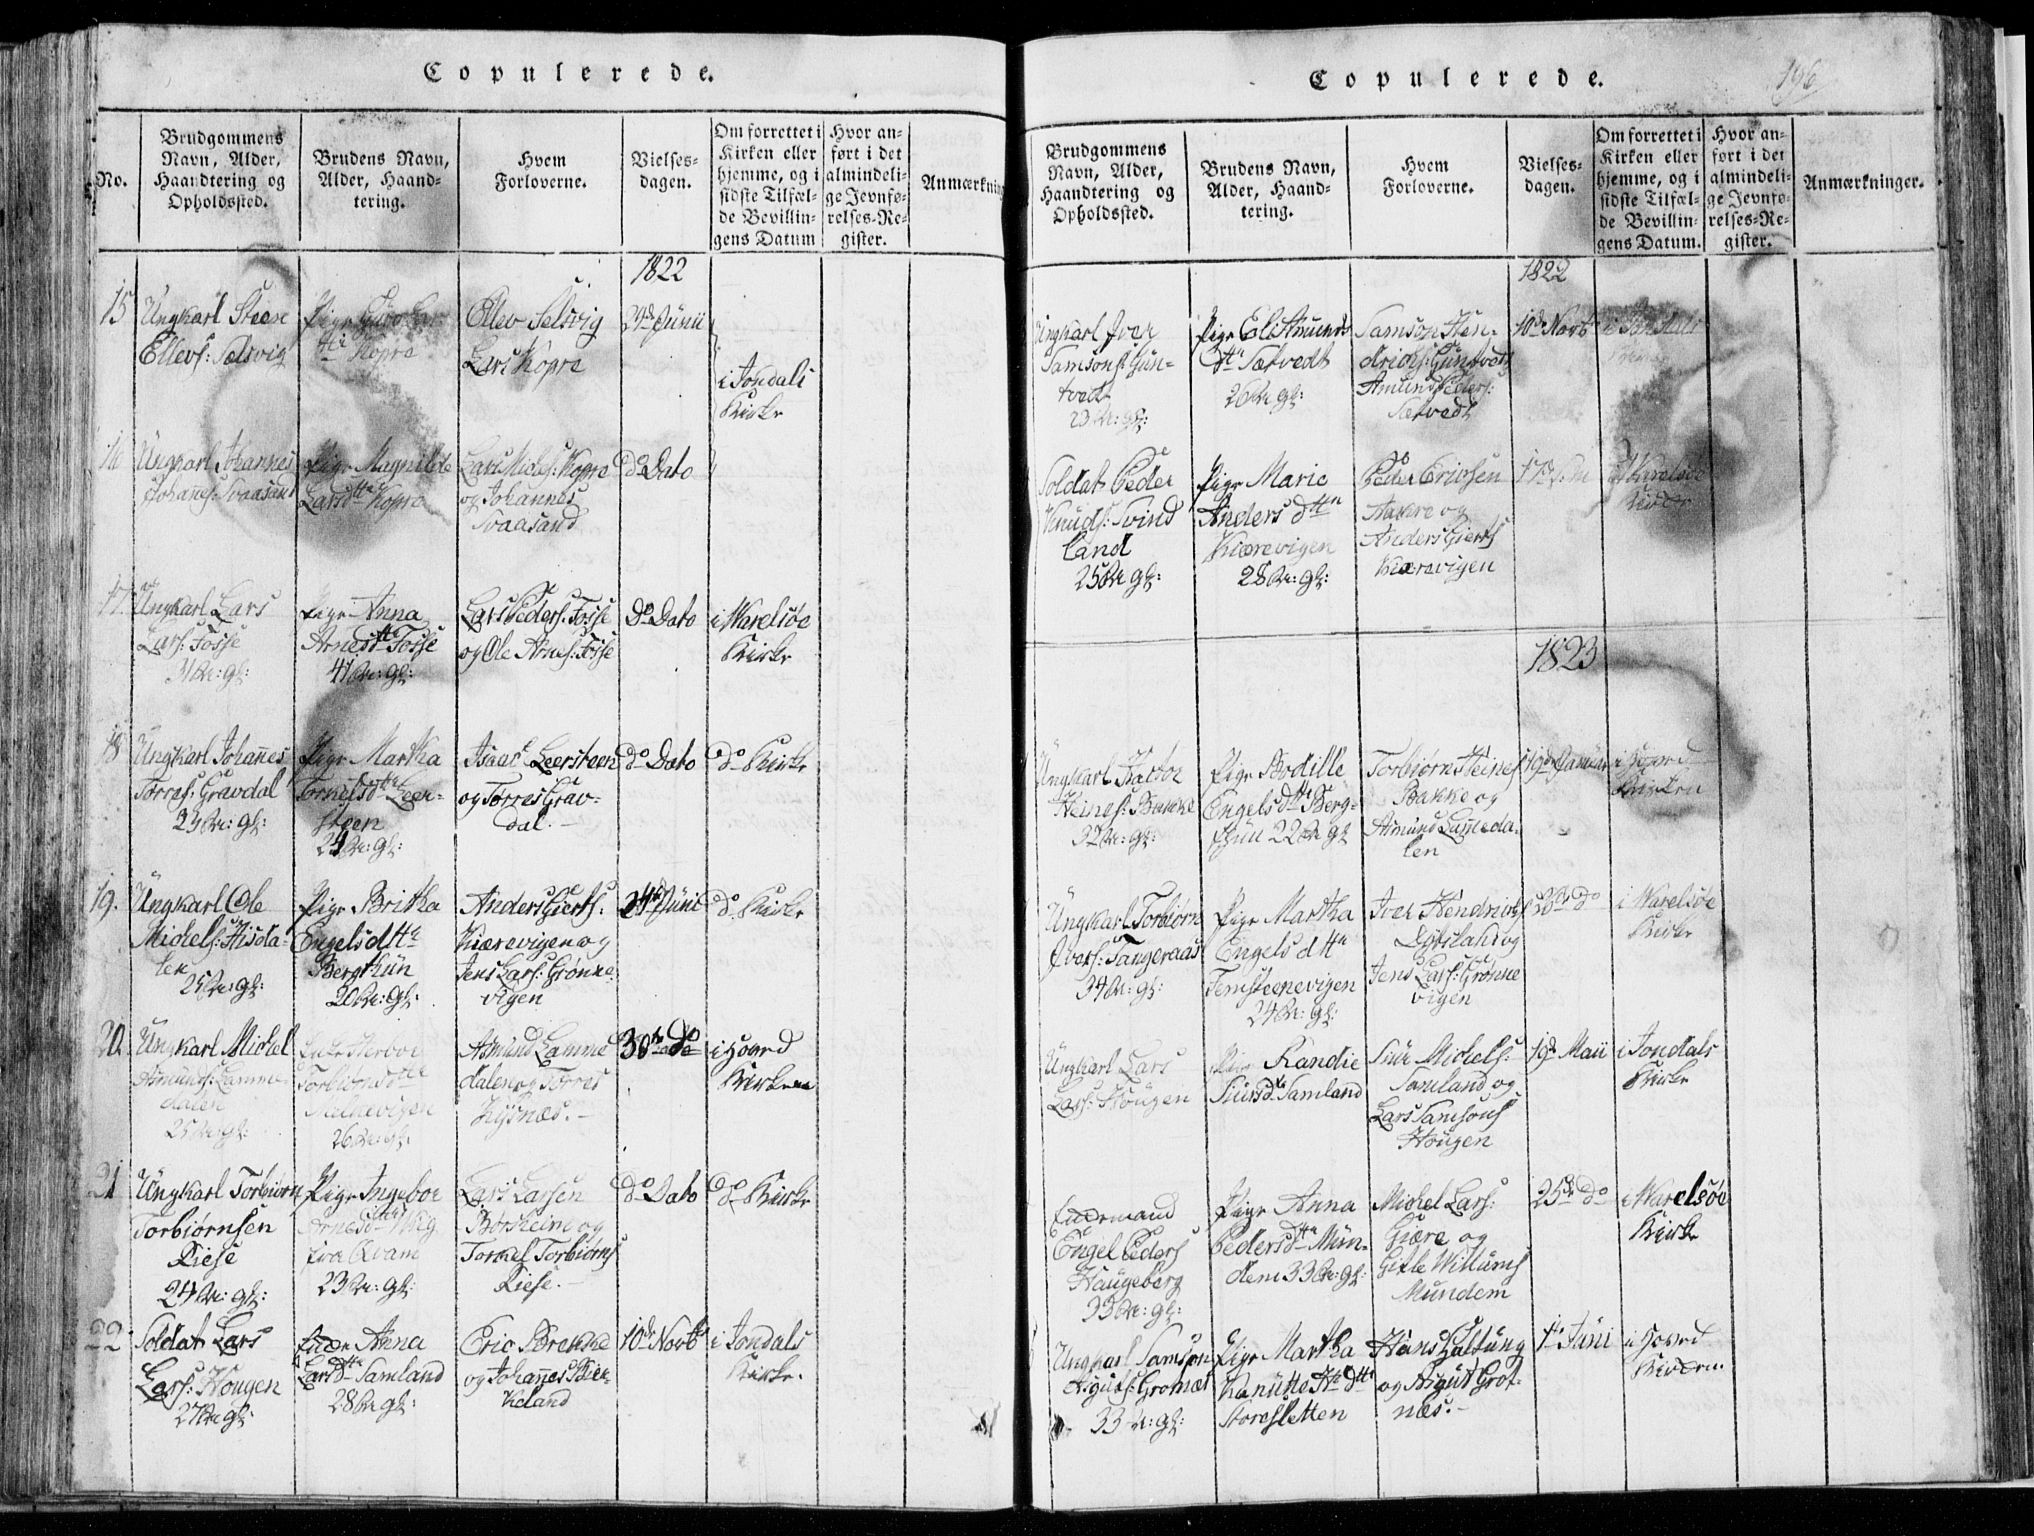 Copulerede.
No.
Brudgommens
Navn, Alder,
Haandtering og
Opholdssted.
Brudens Navn,
Alder, Haand-
tering.
Hvem
Forloverne.
Vielses-
dagen.
Om forrettet i
Kirken eller
hjemme, og i
sidste Tilfæl-
de Bevillin-
gens Datum
Hvor an-
ført i det
almindeli-
ge Jevnfø-
relses-Re-
gister.
Anmærkning
1822
15
Ungkarl Steen
Ellevs: Selsvig
Pige
Kopre
Ellev Selsvig
Lars Kopre
29de Junii
i Jondals
Kirke
16
Ungkarl Johannes
Johans: Svaasand
Pige Magnilde
Larsdtr Kopre
Lars Michels: Kopre
og Johannes
Svaasand
do Dato
17
Ungkarl Lars
Lars: Fosse
31 Ar: gl:
Pige Anna
Arnesdtr Fosse
41 Ar: gl:
Lars Peders: Fosse
og Ole Arnes: Fosse
Do Dato
i Warelsøe
Kirke
18
Ungkarl Johanes
Torres: Gravdal
23 Ar: gl:
Pige Martha
Leer-
steen
24 Ar: gl:
Isaac Leersteen
og Torres Grav-
dal.
do Dato
do Kirke
19.
Ungkarl Ole
Michels: Hisda-
len
25 Ar: gl:
Pige Britha
Engelsdttr
Bergthun
20 Ar: gl:
Anders Gierts:
Kierevigen og
Jens Lars: Grønne-
vigen
24de Junii
do Kirke
20
Ungkarl Michel
Asmunds: Lamme-
dalen
25 Ar: gl:
Torbiørnsdtr
26 Ar: gl:
Asmund Lamme
dalen og Torres
Kysnæs.
30te do
i
Kirken
21
Ungkarl Torbiørn
Torbiørnsen
Riese
24 Ar: gl:
Pige Ingebor
Arnesdtr
fra Qvam
23 Ar: gl:
Lars Larsen
Børsheim og
Torkel Torbiørns
Riese.
do Dato
do Kirke
22
Soldat Lars
Lars: Hougen
27 Ar gl:
Anna
Larsdtr Samland
28 Ar gl:
Eric Brekke
og Johanes Bier-
keland
10de Novb
i Jondals
Kirke.
Copulerede.
196
Brudgommens
Navn, Alder,
Haandtering og
Opholdssted.
Brudens Navn,
Alder, Haand-
tering.
Hvem
Forloverne.
Vielses-
dagen.
Om forrettet i
Kirken eller
hjemme, og i
sidste Tilfæl-
de Bevillin-
gens Datum.
Hvor an-
ført i det
almindeli-
ge Jevnfø-
relses-Re-
gister.
Anmærkninger.
1822
Ungkarl Iver
Samsons: Gun-
tvedt
23 Ar: gl:
Pige Eli Amunds
dttr Sætvedt
26 Ar gl:
Samson Hen-
drichs: Guntvedt
Amund Peders:
Sætvedt
10de Novb
i Jondals
Soldat Peder
Knuds: Svind
land
25 Ar gl:
Pige Marie
Anders dttr
Kiærevigen
28 Ar: gl:
Peder Erichsen
og
Anders Gierts
Kiærevigen
i Warelsøe
Kirke
1823
Ungkarl
Heines: Bakke
32 Ar: gl:
Pige Bodille
Engelsdtr Berg-
thun 22 Ar gl
Torbiørn Heines
Bakke og
Asmund Lammeda-
len
19de Januar
i
Kirken
Ungkarl Torbiørn
Ivers: Tangeraas
34 Ar: gl:
Pige Martha
Engelsdttr
Femsteenevigen
24 Ar: gl:
Iver Hendrichs
og
Jens Lars: Grønne
vigen
do
i Warelsøe
Kirke
Ungkarl Lars
Lars: Hougen
Pige Randie
Siursdtr Samland
Siur Michels:
Samland og
Lars Samsons
Hougen
19de Maii
i Jondals
Kirke
Enkemand
Engel Peders
Haugeberg
33 Ar: gl:
Pige Anna
Pedersdtr Mun-
dem 33 Ar: gl:
Michel Lars:
Giære og
Gitle Willums
Mundem
25de do
i Warelsøe
Kirke
Ungkarl Samson
Grotnæs
33 Ar: gl:
Pige Martha
Kanutte dttr
Storesletten
Hans Galtung
og Aigut Grot-
næs.
1te Juni
i
Kirken